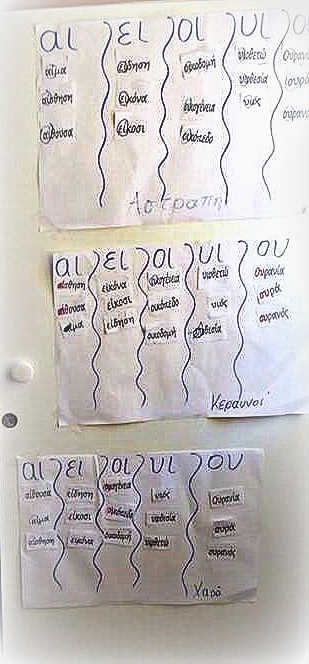 αι ει οι υι ο
αίμα είδηση οικοδομή υιοθετώ Ουρανία
αίσθηση εικόνα οικογένεια υιοθεσία ουρά
αίθουσα είκοσι οικόπεδο υιός ουρανός
Αστραπή
αι ει οι υι ου
αίσθηση εικόνα οικογένεια υιοθετώ Ουρανία
αίθουσα είκοσι οικόπεδο υιός ουρά
αίμα είδηση οικοδομή υιοθεσία ουρανός
Κεραυνοί
αι ει οι υι ου
αίθουσα είδηση οικογένεια υιός Ουρανία
αίμα είκοσι οικόπεδο υιοθεσία ουρά
αίσθηση εικόνα οικοδομή υιοθετώ ουρανός
Χαρά